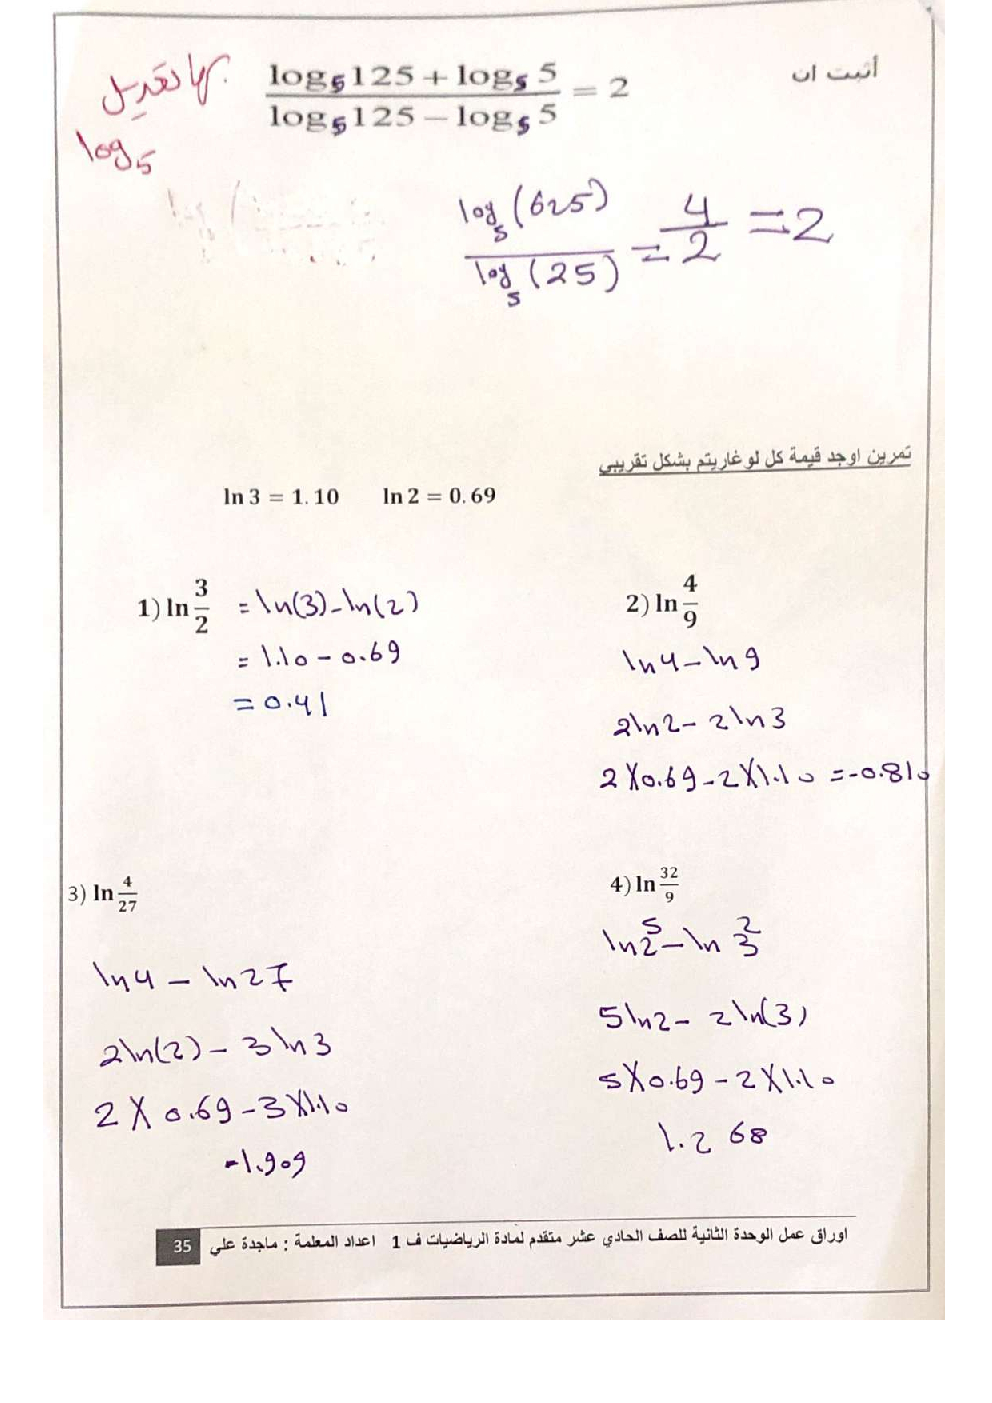 أثبت ان
بها تعديل
log₅
(log₅125 + log₅5) / (log₅125 − log₅5) = 2
log₅(625) / log₅(25) = 4/2 = 2
تمرين اوجد قيمة كل لوغاريتم بشكل تقريبي
ln 3 = 1.10 ln 2 = 0.69
1) ln 3/2 = ln(3) - ln(2)
= 1.10 - 0.69
= 0.41
2) ln 4/9
ln4 - ln9
2ln2 - 2ln3
2×0.69 - 2×1.10 = -0.810
3) ln 4/27
ln4 - ln27
2ln(2) - 3ln3
2×0.69 - 3×1.10
-1.909
4) ln 32/9
ln2⁵ - ln3²
5ln2 - 2ln(3)
5×0.69 - 2×1.10
1.268
اوراق عمل الوحدة الثانية للصف الحادي عشر متقدم لمادة الرياضيات ف 1 اعداد المعلمة : ماجدة علي 35